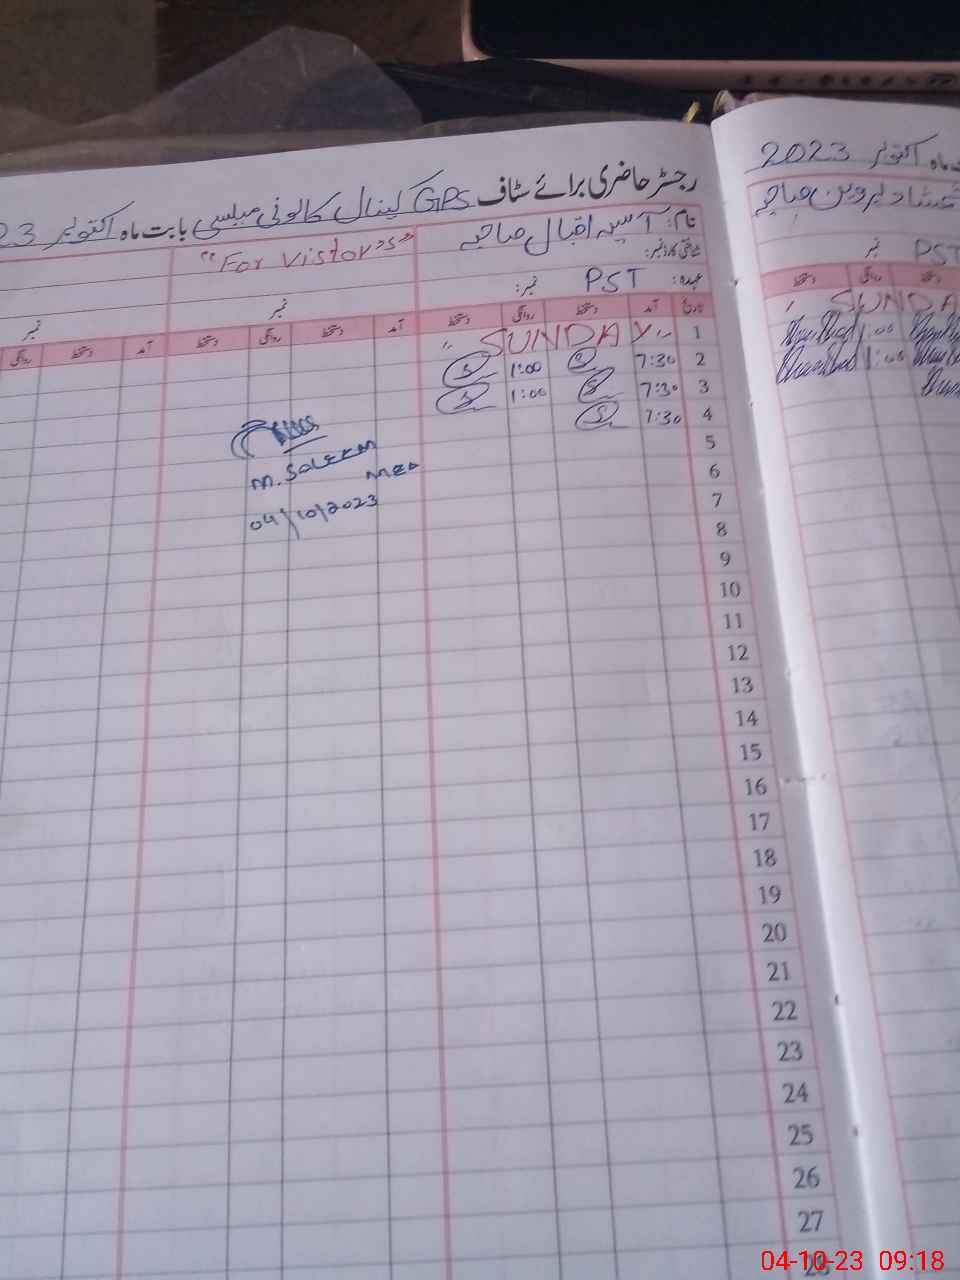 رجسٹر حاضری برائے سٹاف GPS کینال کالونی میلسی بابت ماہ اکتوبر 23
نام: آسیہ اقبال صاحبہ
"For Vistor"s"
شناختی کارڈ نمبر:
عہدہ: PST نمبر:
نمبر
نمبر
تاریخ آمد دستخط روانگی دستخط آمد دستخط روانگی دستخط آمد دستخط روانگی
1 SUNDAY
2 7:30 1:00
3 7:30 1:00
4 7:30
5
6
7
8
9
10
11
12
13
14
15
16
17
18
19
20
21
22
23
24
25
26
27
28
M. Saleem
MEA
04/10/2023
ماہ اکتوبر 2023
شمشاد پروین صاحبہ
نمبر PST
دستخط روانگی دستخط
SUNDA
1:00
1:00
04-10-23 09:18